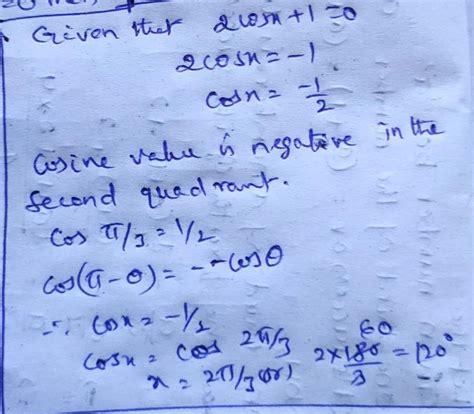 Given that 2cosx+1=0
2cosx = -1
cosx = -1/2
Cosine value is negative in the
second quadrant.
cos π/3 = 1/2
cos(π-θ) = --cosθ
∴ cosx = -1/2
cosx = cos 2π/3
x = 2π/3 (or) 2×180/3 = 120°
60